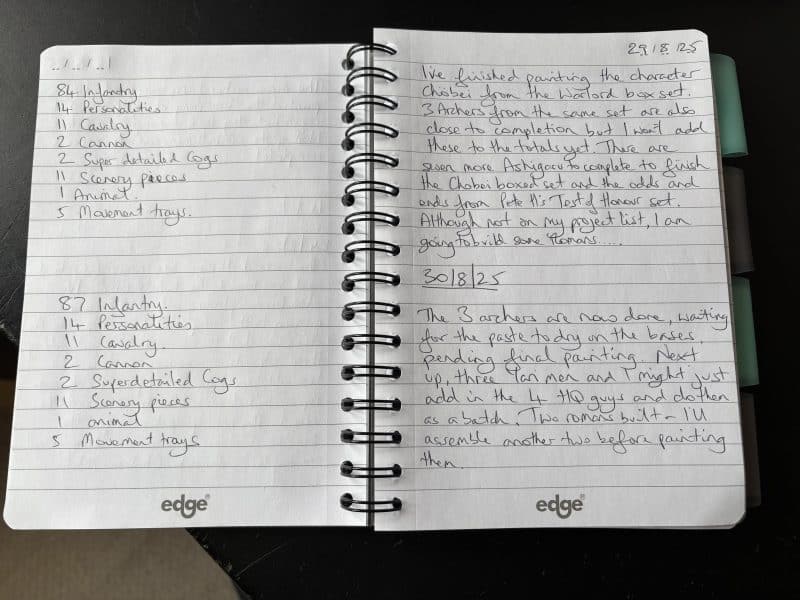 ../../..
84 Infantry
14 Personalities
11 Cavalry
2 Cannon
2 Super detailed Cogs
11 Scenery pieces
1 Animal.
5 Movement trays.
87 Infantry.
14 Personalities
11 Cavalry.
2 Cannon
2 Superdetailed Cogs
11 Scenery pieces
1 animal
5 Movement trays
edge
29/8/25
I've finished painting the character
Chobei from the Warlord box set.
3 Archers from the same set are also
close to completion but I won't add
these to the totals yet. There are
seven more Ashigaru to complete to finish
the Chobei boxed set and the odds and
ends from Pete H's Test of Honour set.
Although not on my project list, I am
going to build some Romans.....
30/8/25
The 3 archers are now done, waiting
for the paste to dry on the bases,
pending final painting. Next
up, three Yari men and I might just
add in the 4 HQ guys and do then
as a batch. Two romans built - I'll
assemble another two before painting
them.
edge